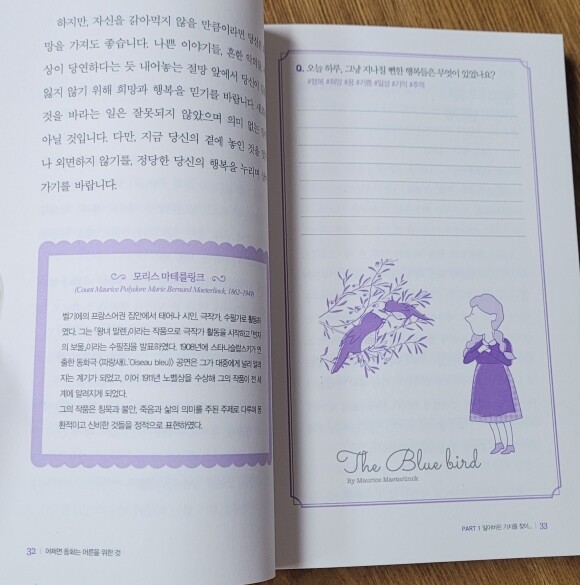 하지만, 자신을 갉아먹지 않을 만큼이라면
망을 가져도 좋습니다. 나쁜 이야기들, 흔한
상이 당연하다는 듯 내어놓는 절망 앞에서 당신이
잃지 않기 위해 희망과 행복을 믿기를 바랍니다.
것을 바라는 일은 잘못되지 않았으며 의미 없는
아닐 것입니다. 다만, 지금 당신의 곁에 놓인 것을
나 외면하지 않기를, 정당한 당신의 행복을 누리며
가기를 바랍니다.
모리스 마테를링크
(Count Maurice Polydore Marie Bernard Maeterlinck, 1862~1949)
벨기에의 프랑스어권 집안에서 태어나 시인, 극작가, 수필가로 활동하
였다. 그는 『왕녀 말렌』이라는 작품으로 극작가 활동을 시작하고
의 보물』이라는 수필집을 발표하였다. 1908년에 스타니슬랍스키가 연
출한 동화극 〈파랑새(L'Oiseau bleu)〉 공연은 그가 대중에게 널리 알려
지는 계기가 되었고, 이어 1911년 노벨상을 수상해 그의 작품이 전 세
계에 알려지게 되었다.
그의 작품은 침묵과 불안, 죽음과 삶의 의미를 주된 주제로 다루며 몽
환적이고 신비한 것들을 정적으로 표현하였다.
32 | 어쩌면 동화는 어른을 위한 것
Q. 오늘 하루, 그냥 지나칠 뻔한 행복들은 무엇이 있었나요?
#행복 #희망 #꿈 #기쁨 #일상 #기억 #추억
The Blue bird
By Maurice Maeterlinck
PART 1 잃어버린 가치를 찾아… | 33